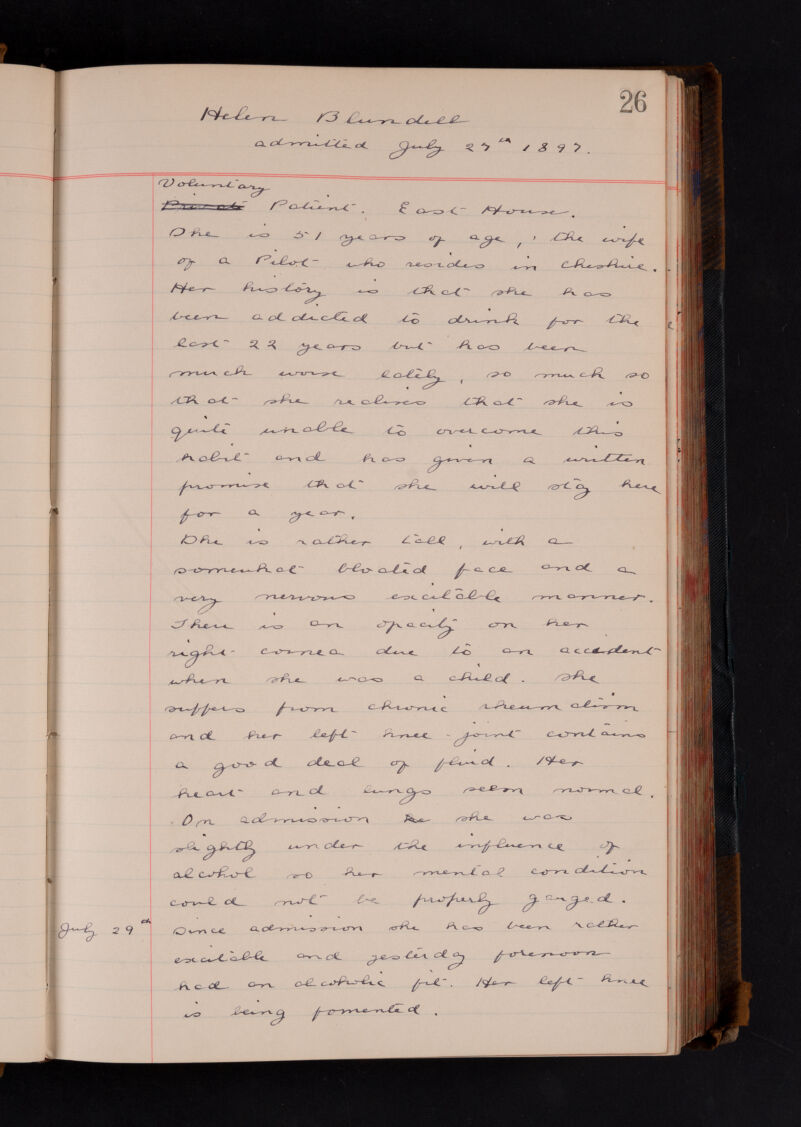 26
Helen Blundell
admitted July 27th 1897.
Voluntary
Private Patient. East House.
She is 51 years of age, the wife
of a Pilot who resides in Cheshire.
Her history is that she has
been addicted to drink for the
last 22 years but has been
much worse lately, so much so
that she realises that she is
quite unable to overcome this
habit and has given a written
promise that she will stay here
for a year.
She is rather tall, with a
somewhat bloated face and a
very nervous excitable manner.
There is an opacity on her
right cornea due to an accident
when she was a child. She
suffers from chronic rheumatism
and her left knee-joint contains
a good deal of fluid. Her
heart and lungs seem normal.
On admission he she was
slightly under the influence of
alcohol so her mental condition
could not be properly gauged.
July 29th Since admission she has been rather
excitable and yesterday forenoon
had an alcoholic fit. Her left knee
is being fomented.